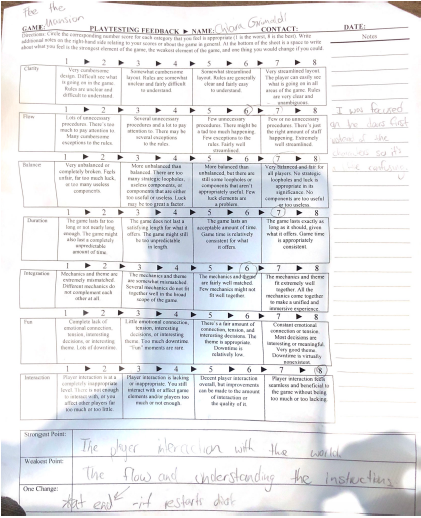 The the
Mansion
GAME: PLAYTESTING FEEDBACK ► NAME: Chiara Grimaldi CONTACT: DATE:
Directions: Circle the corresponding number score for each category that you feel is appropriate (1 is the worst, 8 is the best). Write
additional notes on the right-hand side relating to your scores or about the game in general. At the bottom of the sheet is a space to write
about what you feel is the strongest element of the game, the weakest element of the game, and one thing you would change if you could.
Notes
1 ► 2 ► 3 ► 4 ► 5 ► 6 ► 7 ► 8
Clarity
Very cumbersome
design. Difficult to see what
is going on in the game.
Rules are unclear and
difficult to understand.
Somewhat cumbersome
layout. Rules are somewhat
unclear and fairly difficult
to understand.
Somewhat streamlined
layout. Rules are generally
clear and fairly easy
to understand.
Very streamlined layout.
The player can easily see
what is going on in all
areas of the game. Rules
are very clear and
unambiguous.
1 ► 2 ► 3 ► 4 ► 5 ► 6 ► 7 ► 8
Flow
Lots of unnecessary
procedures. There's too
much to pay attention to.
Many cumbersome
exceptions to the rules.
Several unnecessary
procedures and a lot to pay
attention to. There may be
several exceptions
to the rules.
Few unnecessary
procedures. There might be
a tad too much happening.
Few exceptions to the
rules. Fairly well
streamlined.
Few or no unnecessary
procedures. There's just
the right amount of stuff
happening. Extremely
well streamlined.
I was focused
on the
1 ► 2 ► 3 ► 4 ► 5 ► 6 ► 7 ► 8
Balance
Very unbalanced or
completely broken. Fairly
unfun, far too much luck,
or too many useless
components.
More unbalanced than
balanced. There are too
many strategic loopholes,
useless components, or
components that are either
too useful or useless. Luck
may be too great a factor.
More balanced than
unbalanced, but there are
still some loopholes or
components that aren't
appropriately useful. Few
luck elements are
a problem.
Very balanced and fair for
all players. No strategic
loopholes and luck is
appropriate in its
significance. No
components are too useful
or too useless.
1 ► 2 ► 3 ► 4 ► 5 ► 6 ► 7 ► 8
Duration
The game lasts far too
long or not nearly long
enough. The game might
also last a completely
unpredictable
amount of time.
The game does not last a
satisfying length for what it
offers. The game might still
be too unpredictable
in length.
The game lasts an
acceptable amount of time.
Game time is relatively
consistent for what
it offers.
The game lasts exactly as
long as it should, given
what it offers. Game time
is appropriately
consistent.
1 ► 2 ► 3 ► 4 ► 5 ► 6 ► 7 ► 8
Integration
Mechanics and theme are
extremely mismatched.
Different mechanics do
not complement each
other at all
The mechanics and theme
are somewhat mismatched.
Several mechanics do not fit
together well in the broad
scope of the game.
The mechanics and theme
are fairly well matched.
Few mechanics might not
fit well together.
The mechanics and theme
fit extremely well
together. All the
mechanics come together
to make a unified and
immersive experience.
1 ► 2 ► 3 ► 4 ► 5 ► 6 ► 7 ► 8
Fun
Complete lack of
emotional connection,
tension, interesting
decisions, or interesting
theme. Lots of downtime.
Little emotional connection,
tension, interesting
decisions, or interesting
theme. Too much downtime.
"Fun" moments are rare.
There's a fair amount of
connection, tension, and
interesting decisions. The
theme is appropriate.
Downtime is
relatively low.
Constant emotional
connection or tension.
Most decisions are
interesting or meaningful.
Very good theme.
Downtime is virtually
nonexistent.
1 ► 2 ► 3 ► 4 ► 5 ► 6 ► 7 ► 8
Interaction
Player interaction is at a
completely inappropriate
level. There is not enough
to interact with, or you
affect other players far
too much or too little.
Player interaction is lacking
or inappropriate. You still
interact with or affect game
elements and/or players too
much or not enough.
Decent player interaction
overall, but improvements
can be made to the amount
of interaction or
the quality of it.
Player interaction feels
seamless and beneficial to
the game without being
too much or too lacking.
Strongest Point:
The player interaction with the world
Weakest Point:
The flow and understanding the instructions
One Change:
end - it restarts